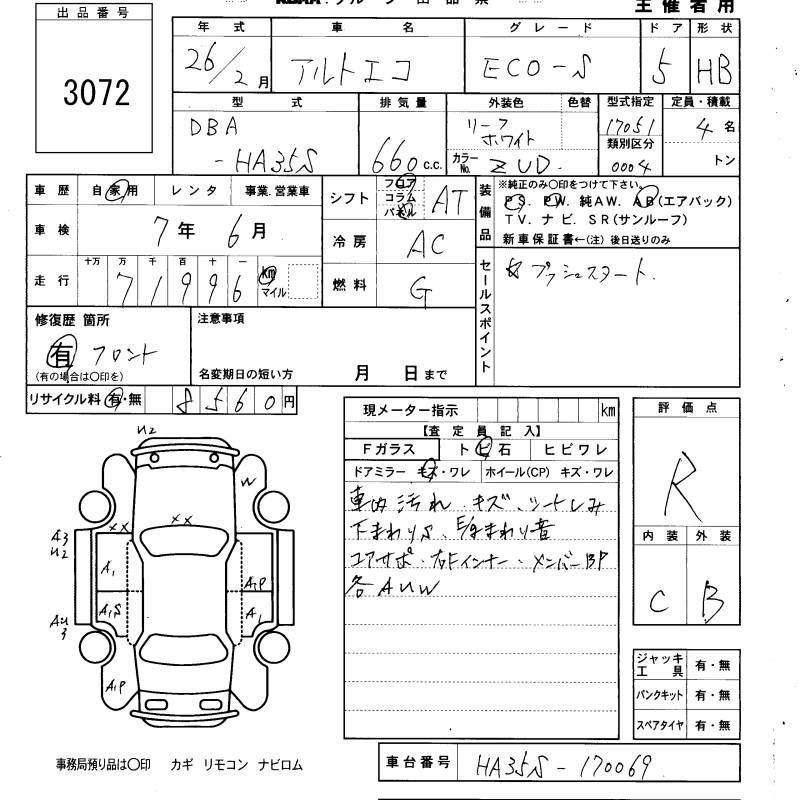 出品番号
3072
主催者用
年式 車名 グレード ドア 形状
26/2月 アルトエコ ECO-S 5 HB
型式 排気量 外装色 色替 型式指定 定員・積載
DBA
-HA35S
660c.c.
リーフ
ホワイト
カラーNo. ZUD
17051
類別区分
0004
4名
トン
車歴 自家用 レンタ 事業.営業車
車検 7年 6月
走行 十万 万 千 百 十 一
71996 km
マイル
シフト フロア
コラム
パネル
AT
冷房 AC
燃料 G
装備品
※純正のみ○印をつけて下さい。
PS. PW. 純AW. AB(エアバック)
TV. ナビ. SR(サンルーフ)
新車保証書←(注) 後日送りのみ
セールスポイント
☆プッシュスタート.
修復歴 箇所
有 フロント
(有の場合は○印を)
注意事項
名変期日の短い方 月 日まで
リサイクル料 有・無 8560円
現メーター指示 km
【査定員記入】
Fガラス トビ石 ヒビワレ
ドアミラー キズ・ワレ ホイール(CP) キズ・ワレ
車内汚れ. キズ. シートしみ
下まわりS. E/gまわり音
コアサポ. 右Fインナー. メンバーBP
各AUW
評価点
R
内装 外装
C B
ジャッキ
工具
有・無
パンクキット 有・無
スペアタイヤ 有・無
U2
W
XX
XX
A3
U2
A1
A1P
A1S
A1
AU
3
A1P
事務局預り品は○印 カギ リモコン ナビロム
車台番号 HA35S-170069